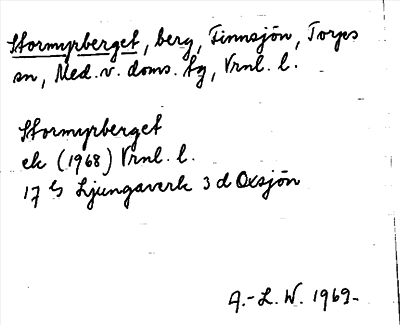 Stormyrberget, berg, Finnsjön, Torps
sn, Med. v. doms. tg, Vrnl. l.
Stormyrberget
ek (1968) Vrnl. l.
17 G Ljungaverk 3 d Oxsjön
A.-L. W. 1969-